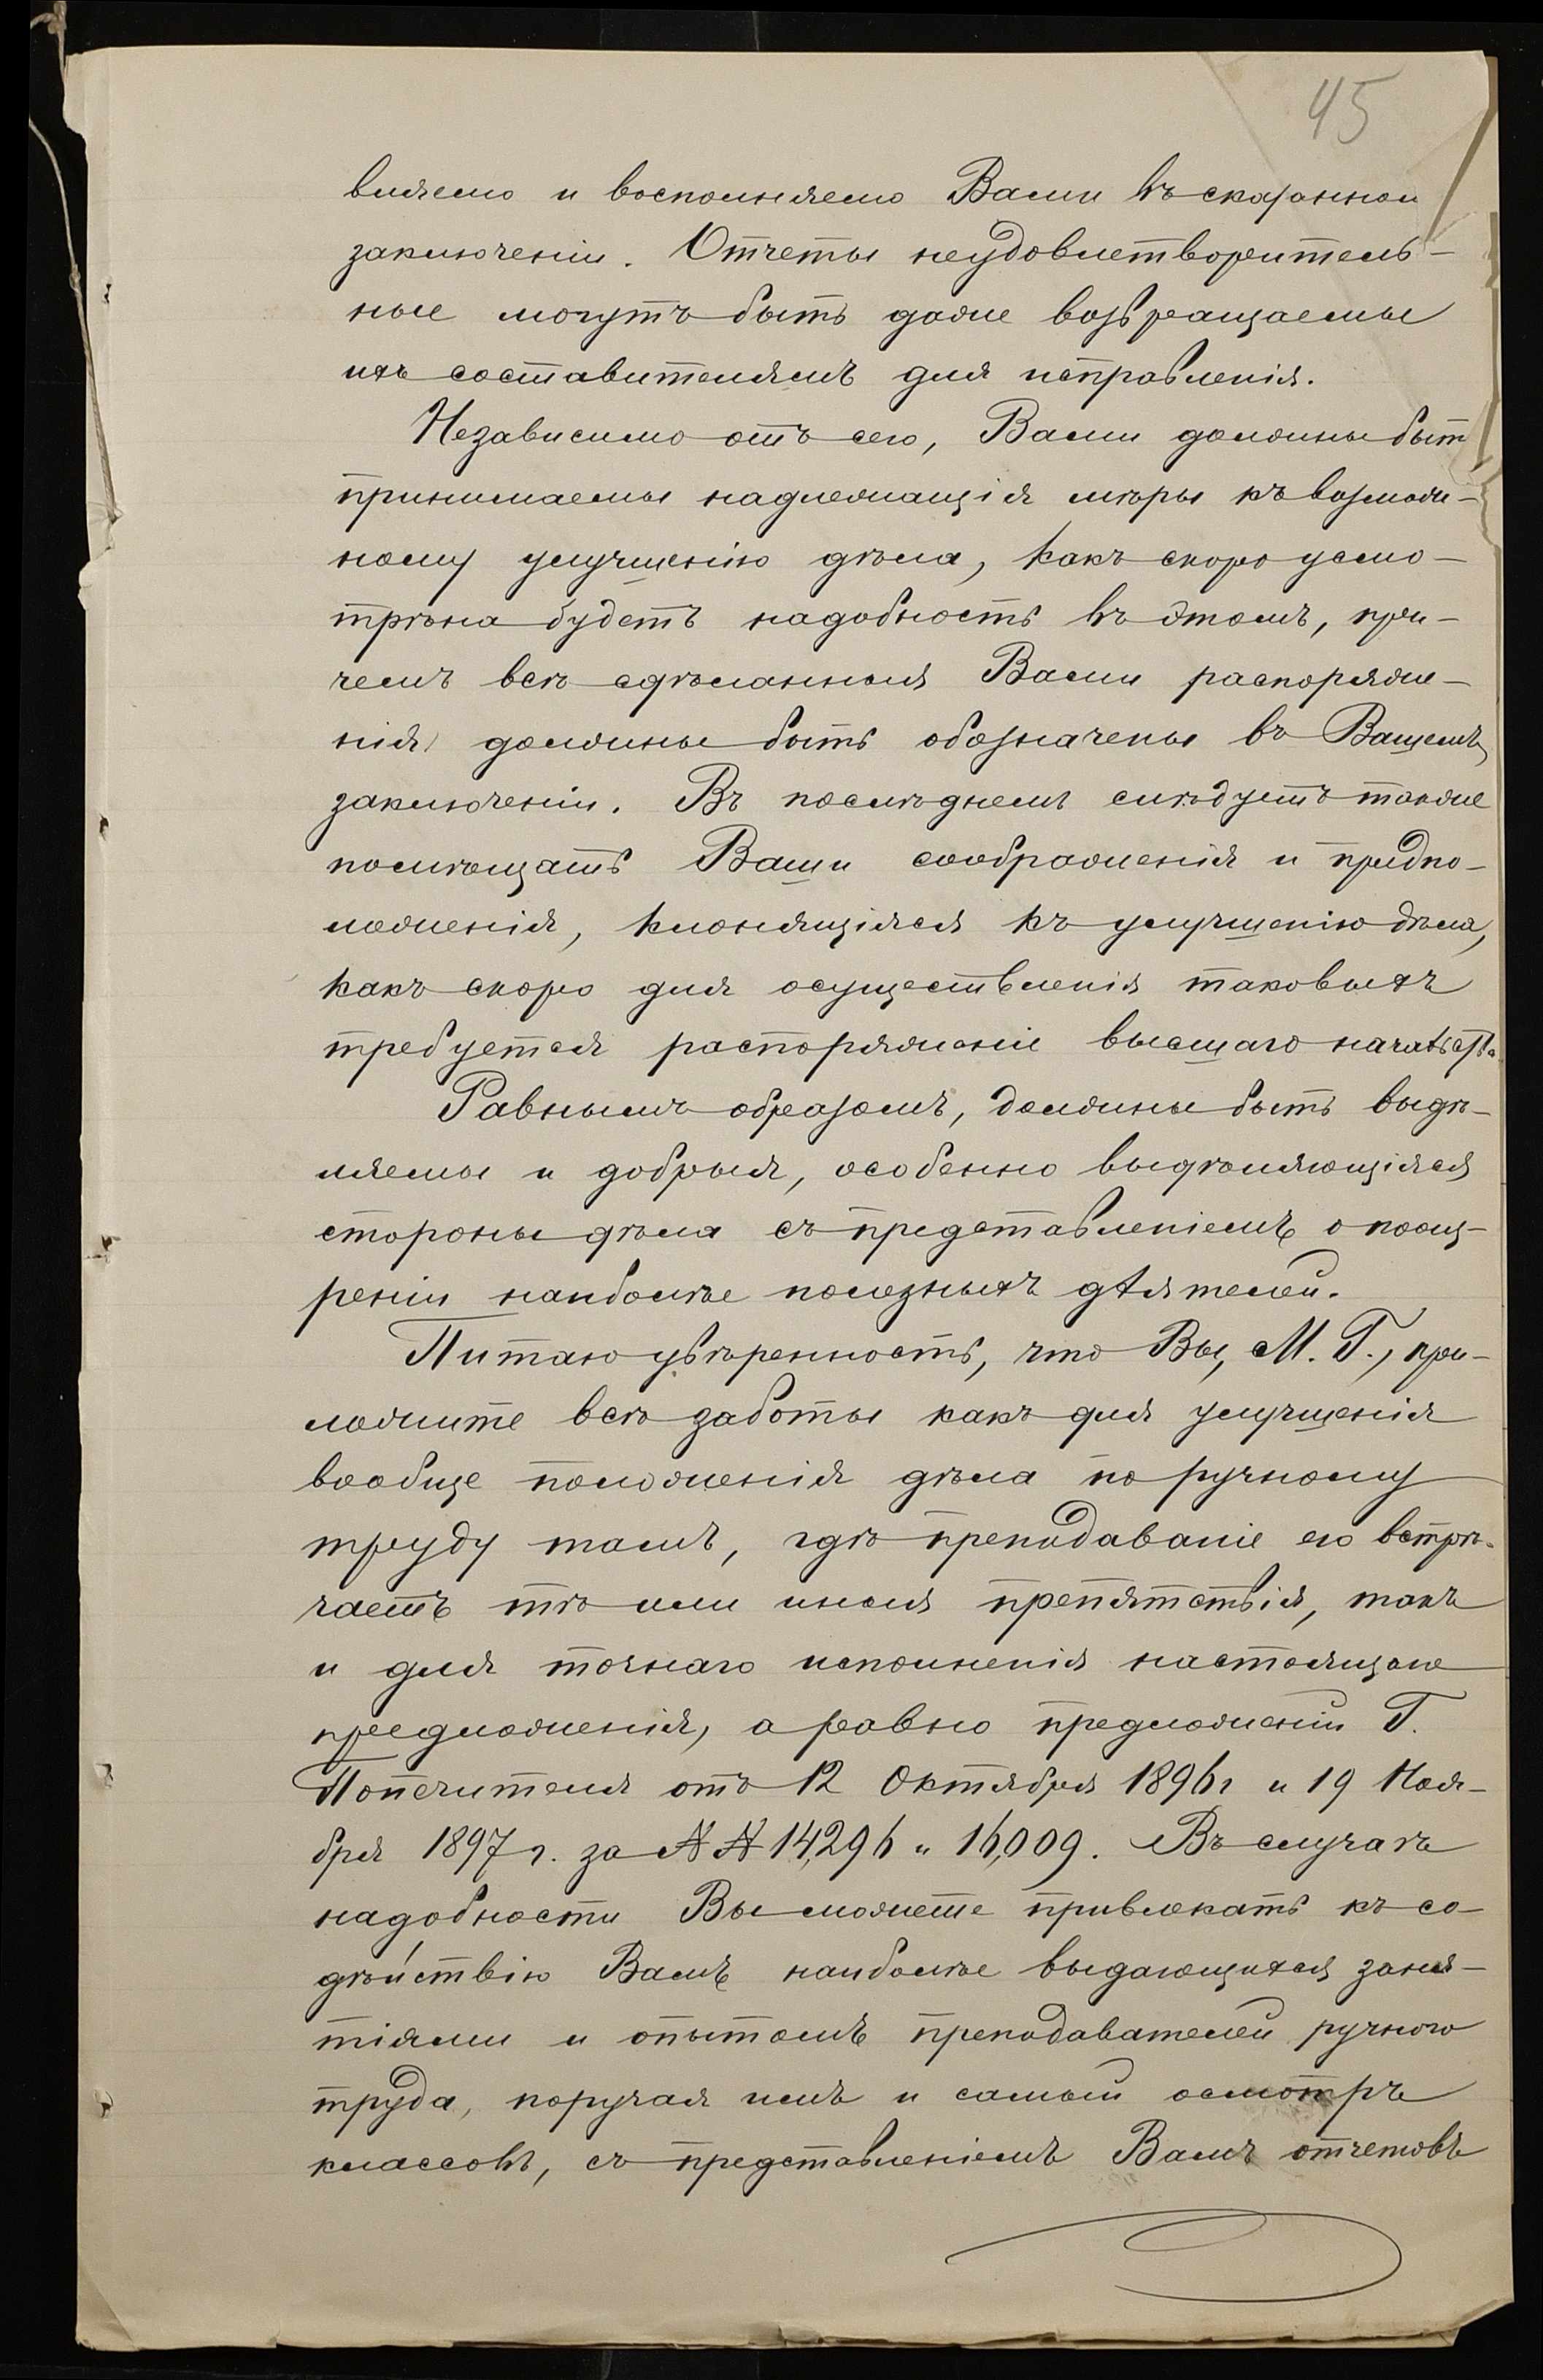 45
вляемо и восполняемо Вами въ сказанном
заключеніи. Отчеты неудовлетворитель-
ные могутъ быть даже возвращаемы
ихъ составителямъ для исправленія.
Независимо отъ сего, Вами должны быт
принимаемы надлежащія мѣры къ возмож-
ному улучшенію дѣла, какъ скоро усмо-
трѣна будетъ надобность въ этомъ, при-
чемъ всѣ сдѣланныя Вами распоряже-
нія должны быть обозначены въ Вашемъ
заключеніи. Въ послѣднемъ слѣдуетъ также
помѣщать Ваши соображенія и предпо-
ложенія, клонящіяся къ улучшенію дѣла,
какъ скоро для осуществленія таковыхъ
требуется распоряженіе высшаго начальства.
Равнымъ образомъ, должны быть выдѣ-
ляемы и добрыя, особенно выдѣляющіяся
стороны дѣла съ представленіемъ о поощ-
реніи наиболѣе полезныхъ дѣятелей.
Питаю увѣренность, что Вы, М. Г., при-
ложите всѣ заботы какъ для улучшенія
вообще положенія дѣла по ручному
труду тамъ, гдѣ преподаваніе его встрѣ-
чаетъ тѣ или иныя препятствія, такъ
и для точнаго исполненія настоящаго
предложенія, а равно предложеній Г.
Попечителя отъ 12 Октября 1896 г и 19 Ноя-
бря 1897 г. за № № 14,296 и 16,009. Въ случаѣ
надобности Вы можете привлекать къ со-
дѣйствію Вамъ наиболѣе выдающихся заня-
тіями и опытомъ преподавателей ручного
труда, поручая имъ и самый осмотръ
классовъ, съ представленіемъ Вамъ отчетовъ